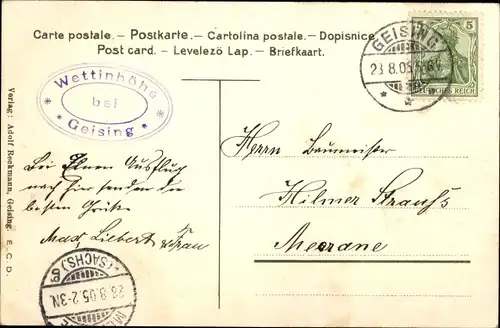 Carte postale. – Postkarte. – Cartolina postale. – Dopisnice.
Post card. – Levelezö Lap. – Briefkaart.
GEISING
23.8.05
5
5
DEUTSCHES REICH
Wettinhöhe
bei
Geising
Verlag: Adolf Reckmann, Geising. E. C. D.
Herrn Baumeister
Hilmer Strauß
Meerane
Bei Ausflug
nach hier senden die
besten Grüße
Max Liebert & Frau
(SACHS.)
28.8.05.2-3N.